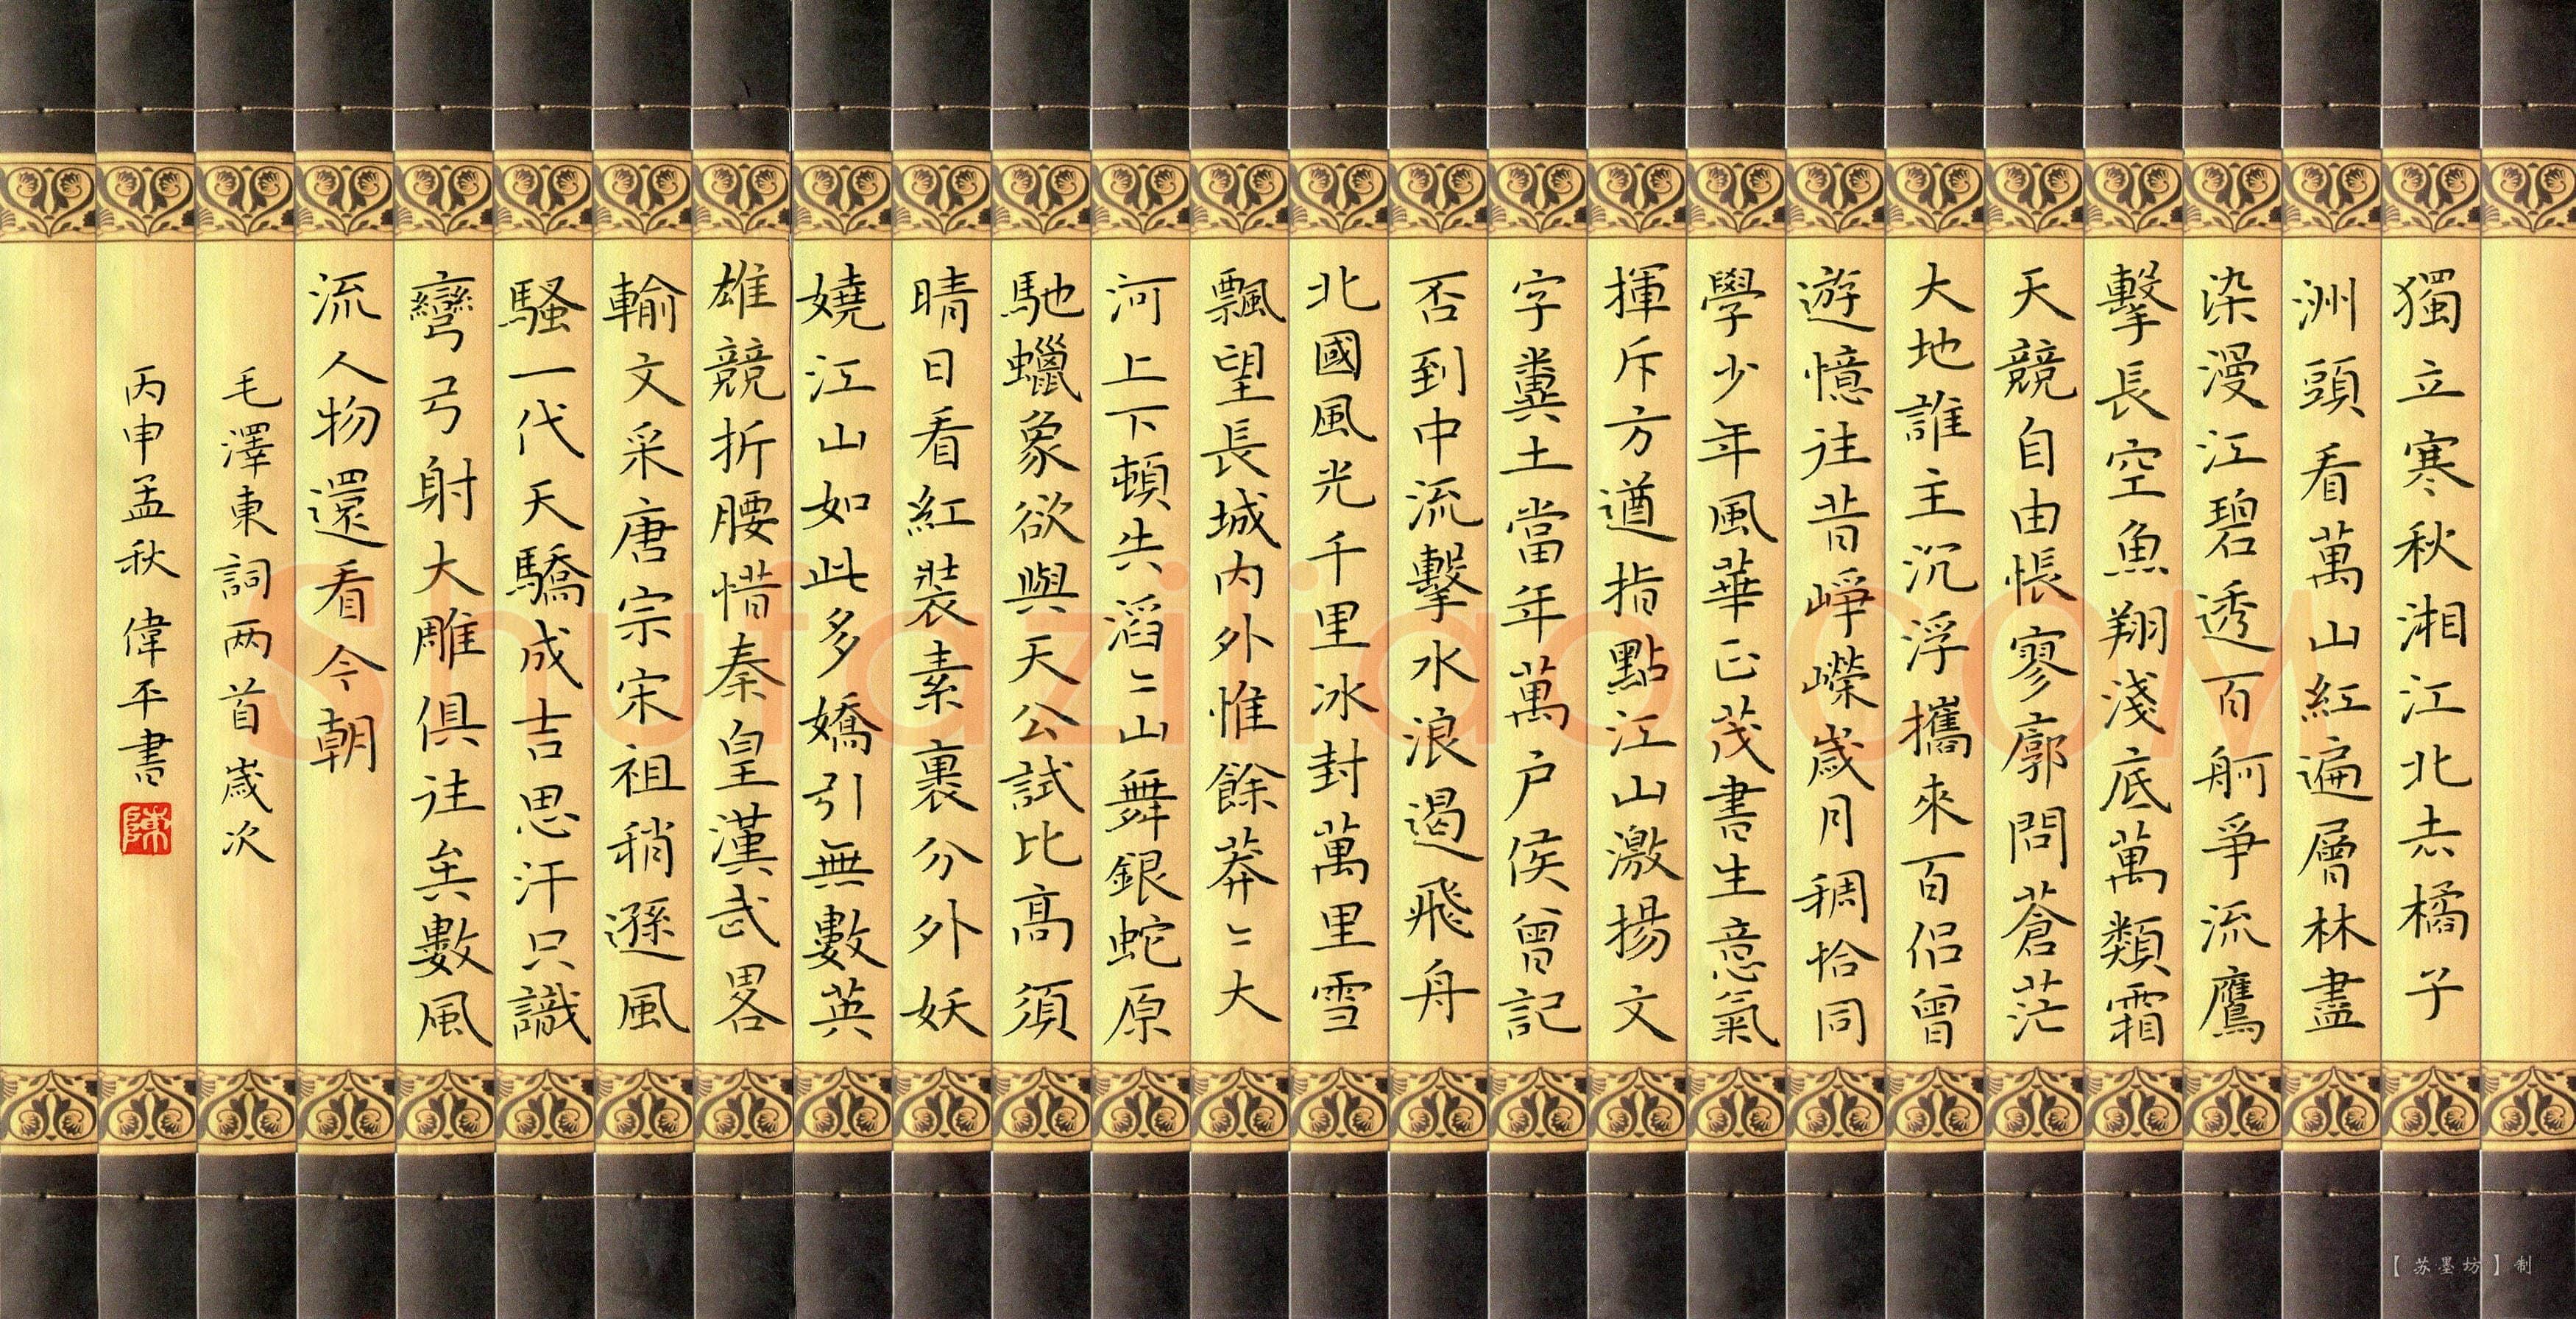 獨立寒秋湘江北去橘子
洲頭看萬山紅遍層林盡
染漫江碧透百舸爭流鷹
擊長空魚翔淺底萬類霜
天競自由悵寥廓問蒼茫
大地誰主沉浮攜來百侶曾
遊憶往昔崢嶸歲月稠恰同
學少年風華正茂書生意氣
揮斥方遒指點江山激揚文
字糞土當年萬户侯曾記
否到中流擊水浪遏飛舟
北國風光千里冰封萬里雪
飄望長城内外惟餘莽〻大
河上下頓失滔〻山舞銀蛇原
馳蠟象欲與天公試比高須
晴日看紅裝素裹分外妖
嬈江山如此多嬌引無數英
雄競折腰惜秦皇漢武畧
輸文采唐宗宋祖稍遜風
騷一代天驕成吉思汗只識
彎弓射大雕俱往矣數風
流人物還看今朝
毛澤東詞两首歲次
丙申孟秋偉平書
陳
Shufaziliao.COM
【苏墨坊】制